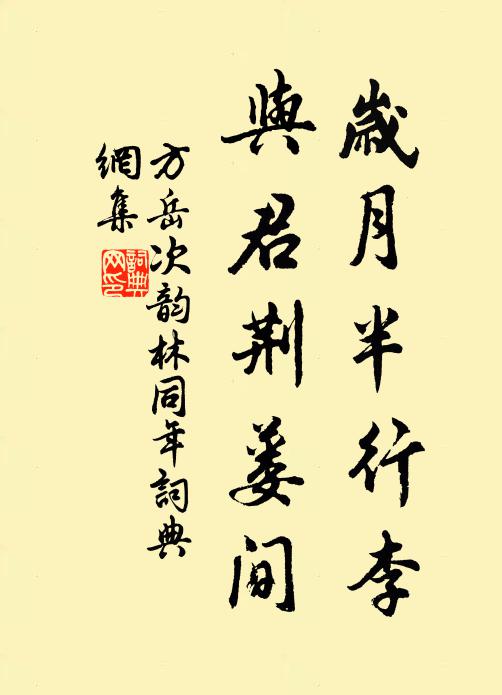 歲月半行李
與君荆蒌間
方岳次韵林同年詞典
網集
詞典
网印